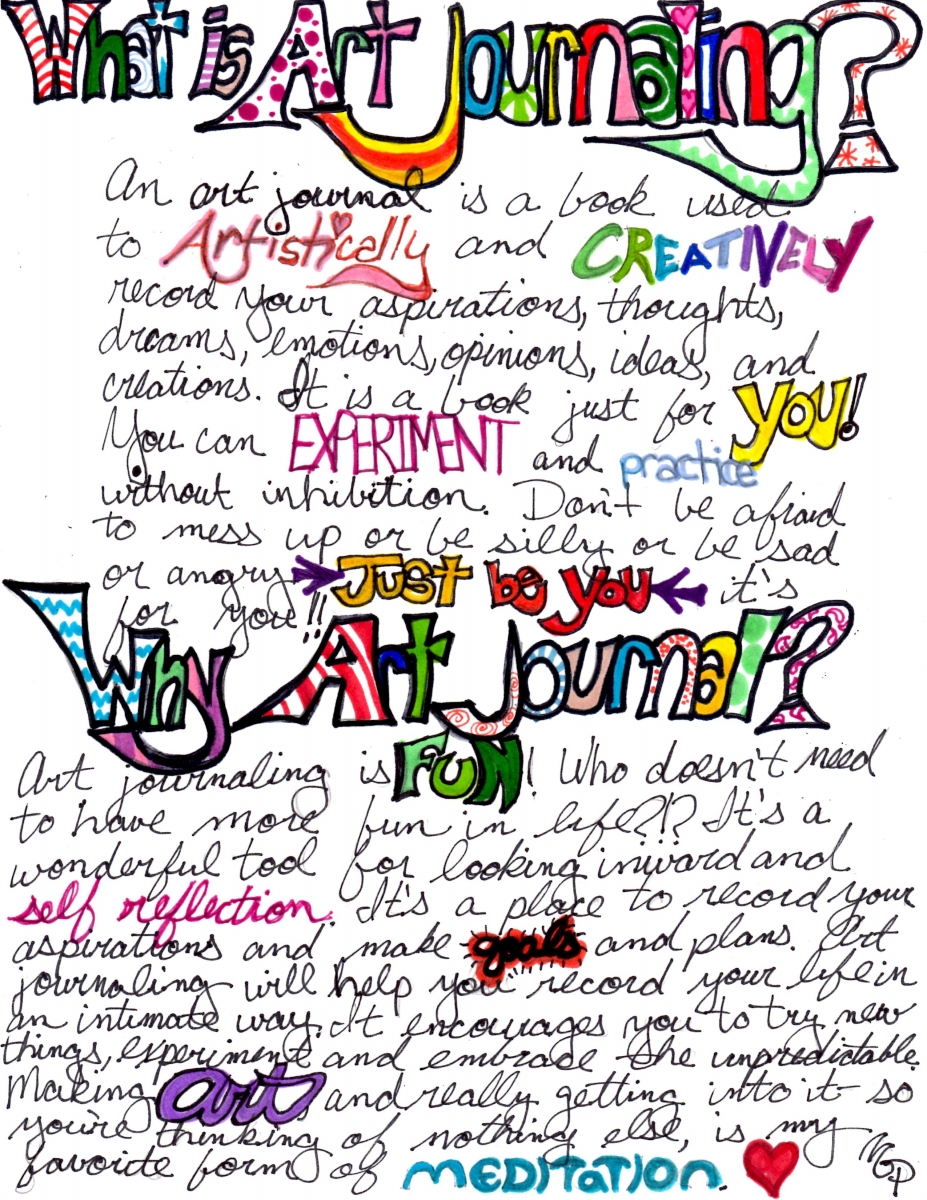 What is Art Journaling?
An art journal is a book used
to Artistically and CREATIVELY
record your aspirations, thoughts,
dreams, emotions, opinions, ideas, and
creations. It is a book just for YOU!
You can EXPERIMENT and practice
without inhibition. Don't be afraid
to mess up or be silly or be sad
or angry Just be you it's
for you!!
Why Art Journal?
Art journaling is FUN! Who doesn't need
to have more fun in life?!? It's a
wonderful tool for looking inward and
self reflection. It's a place to record your
aspirations and make goals and plans. Art
journaling will help you record your life in
an intimate way. It encourages you to try new
things, experiment and embrace the unpredictable.
Making art and really getting into it so
you're thinking of nothing else, is my
favorite form of MEDITATION.
MGP